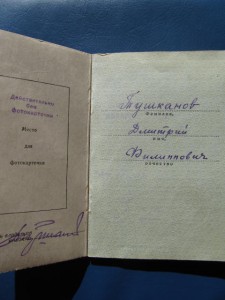 Действительно
без
фотокарточки
Место
для
фотокарточки
Тушканов
фамилия
Дмитрий
имя
Филиппович
отчество